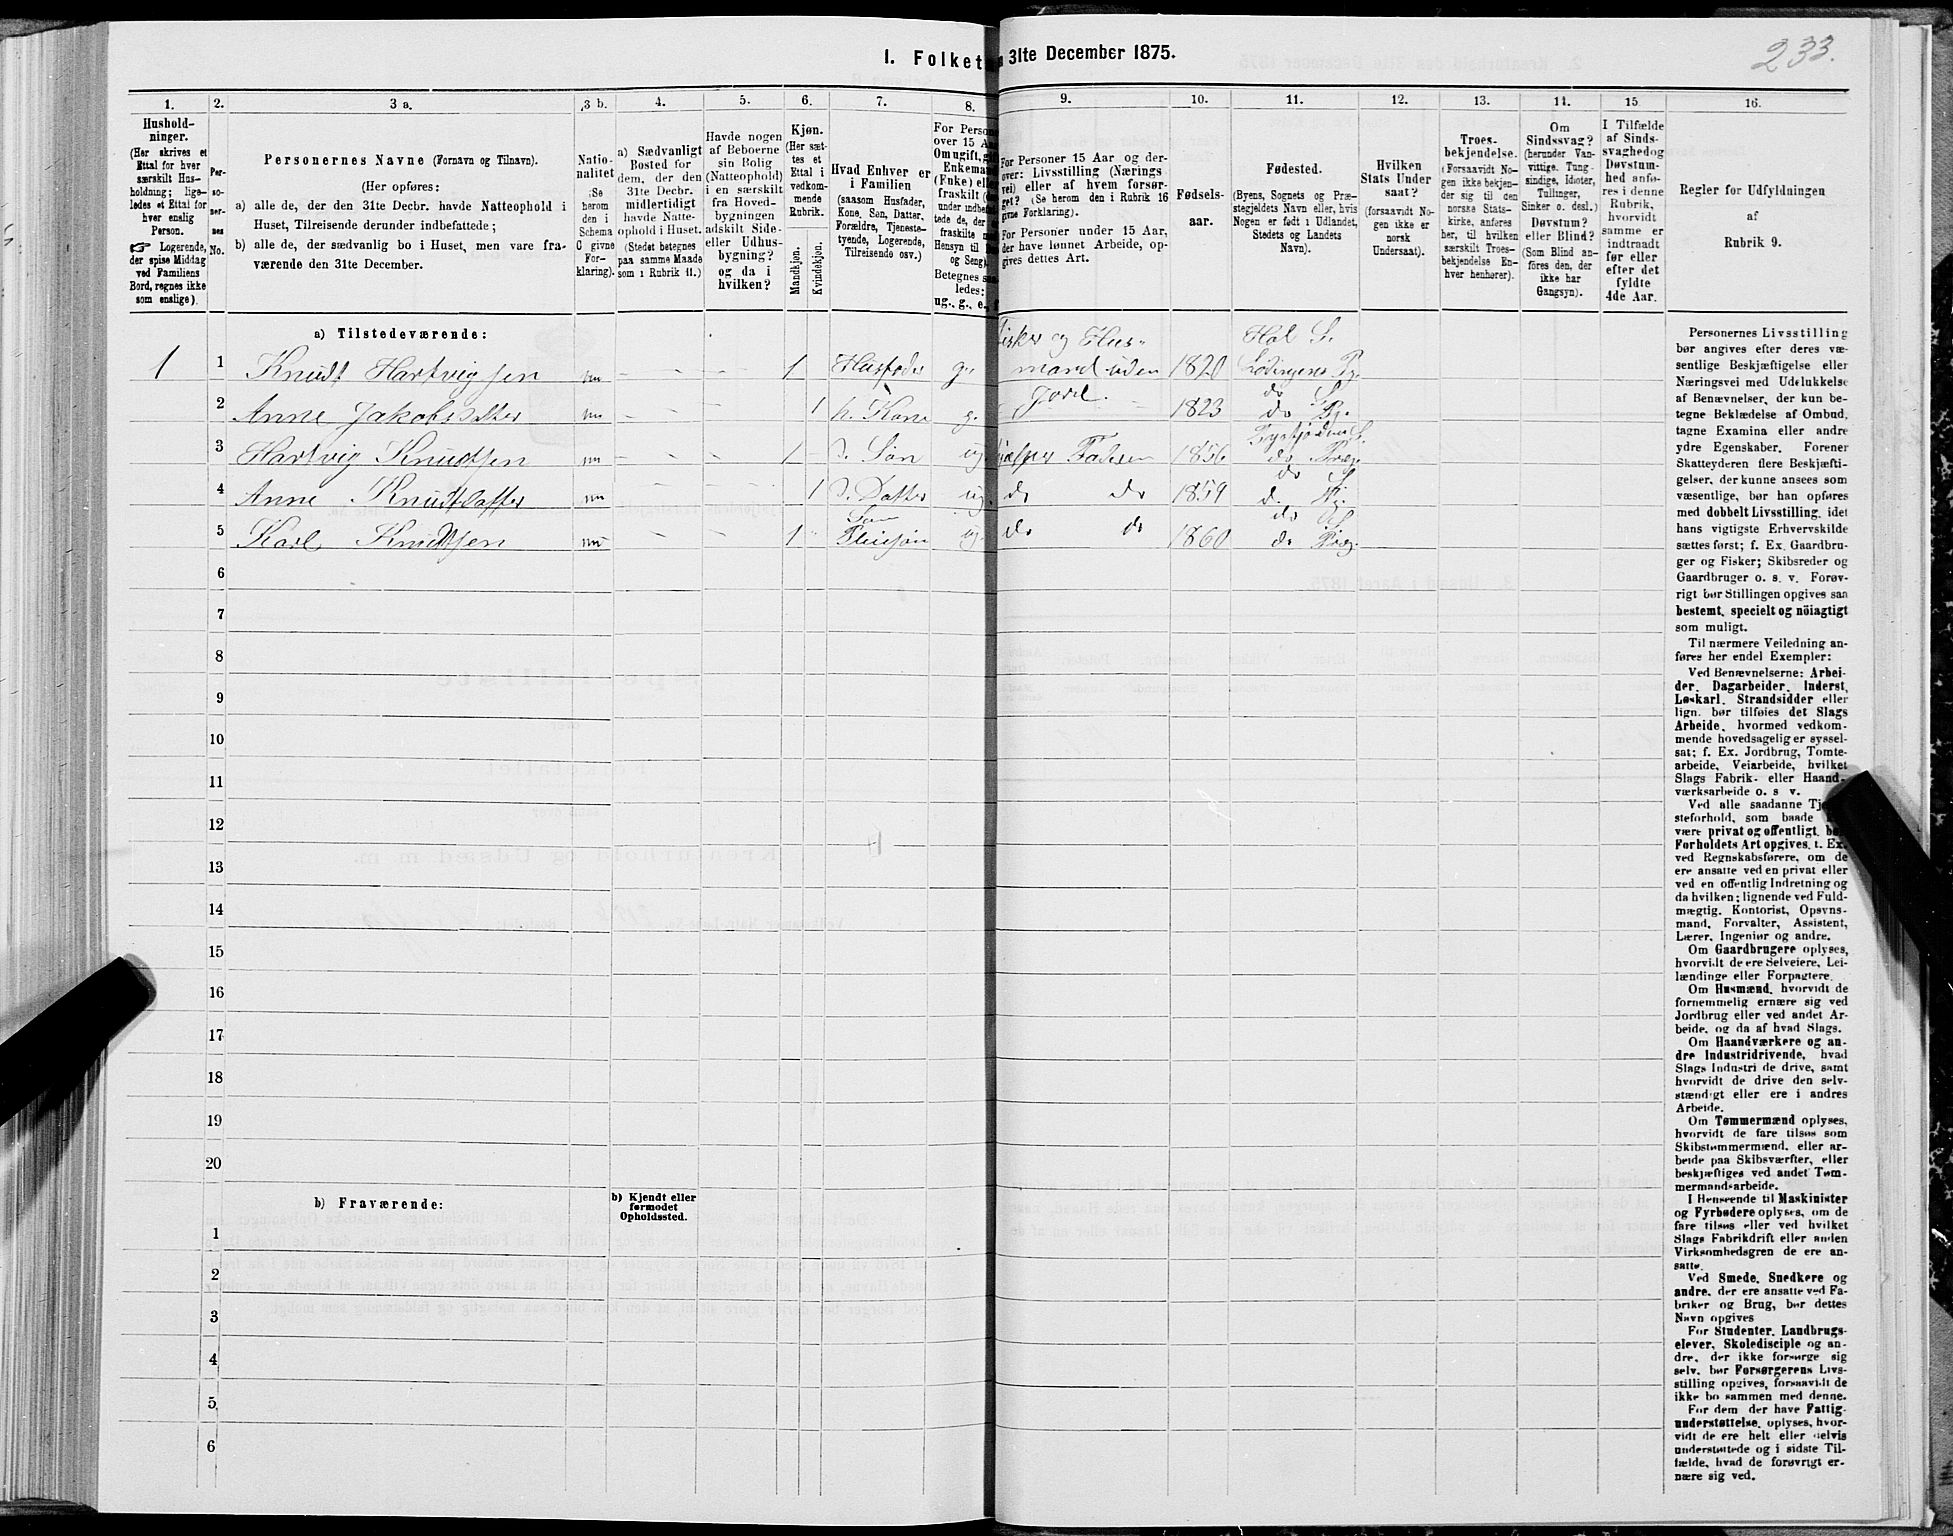 233.
I. Folket
31te December 1875.
1.
Hushold-
ninger.
(Her skrives et
Ettal for hver
særskilt Hus-
holdning; lige-
ledes et Ettal for
hver enslig
Person.
☞ Logerende,
der spise Middag
ved Familiens
Bord, regnes ikke
som enslige).
2.
Per-
so-
ner-
nes
No.
3 a.
Personernes Navne (Fornavn og Tilnavn).
(Her opføres:
a) alle de, der den 31te Decbr. havde Natteophold i
Huset, Tilreisende derunder indbefattede;
b) alle de, der sædvanlig bo i Huset, men vare fra-
værende den 31te December.
3 b.
Natio-
nalitet
(Se
herom
den i
Schema
C givne
For-
klaring).
4.
a) Sædvanligt
Bosted for
dem, der den
31te Decbr.
midlertidigt
havde Natte-
ophold i Huset.
(Stedet betegnes
paa samme Maade
som i Rubrik 11.)
5.
Havde nogen
af Beboerne
sin Bolig
(Natteophold)
i en særskilt
fra Hoved-
bygningen
adskilt Side-
eller Udhus-
bygning?
og da i
hvilken?
6.
Kjøn.
(Her sæt-
tes et
Ettal i
vedkom-
mende
Rubrik.
Mandkjøn.
Kvindekjøn.
7.
Hvad Enhver er
i Familien
(saasom Husfader,
Kone, Søn, Datter,
Forældre, Tjeneste-
tyende, Logerende,
Tilreisende osv.)
8.
For Person
over 15 Aa
Om ugift, gi
Enkema
(Enke) ell
fraskilt
under indbef
tede de, der
fraskilte m
Hensyn til B
og Seng).
Betegnes sa
ledes:
ug., g., e.,
9.
For Personer 15 Aar og der-
over: Livsstilling (Nærings
vei) eller af hvem forsør-
get? (Se herom den i Rubrik 16
givne Forklaring).
For Personer under 15 Aar,
der have lønnet Arbeide, op-
gives dettes Art.
10.
Fødsels-
aar.
11.
Fødested.
(Byens, Sognets og Præ-
stegjeldets Navn eller, hvis
Nogen er født i Udlandet,
Stedets og Landets
Navn).
12.
Hvilken
Stats Under
saat?
(forsaavidt No-
gen ikke er
norsk
Undersaat).
13.
Troes-
bekjendelse.
(Forsaavidt No-
gen ikke bekjen-
der sig til den
norske Stats-
kirke, anføres
her, til hvilken
særskilt Troes-
bekjendelse En-
hver henhører).
14.
Om
Sindssvag?
(herunder Van-
vittige, Tung-
sindige, Idioter,
Tullinger,
Sinker o. desl.)
Døvstum?
eller Blind?
(Som Blind an-
føres den, der
ikke har
Gangsyn).
15
I Tilfælde
af Sinds-
svaghed og
Døvstum-
hed anfø-
res i denne
Rubrik,
hvorvidt
samme er
indtraadt
før eller
efter det
fyldte
4de Aar.
16.
Regler for Udfyldningen
af
Rubrik 9.
a) Tilstedeværende:
1 1 Knudt Hartvigsen nn - - 1 Husfader g. Fisker og Hus- mand uden Jord. 1820 Hol S. Lødingens Pg.
2 Anne Jakobsdatter nn - - 1 h. Kone g. 1823 do S. do Pg.
3 Hartvig Knudtsen nn - - 1 d. Søn ug. Hjelper Faderen 1856 Tysfjordens S. do Præg.
4 Anne Knudtsdatter nn - - 1 d. Datter ug. do do 1859 do S. do Pg.
5 Karl Knudtsen nn - - 1 Søn Pleiesøn ug. do do 1860 do S. do Præg.
6
7
8
9
10
11
12
13
14
15
16
17
18
19
20
b) Fraværende:
b) Kjendt eller
formodet
Opholdssted.
1
2
3
4
5
6
Personernes Livsstilling
bør angives efter deres væ-
sentlige Beskjæftigelse eller
Næringsvei med Udelukkelse
af Benævnelser, der kun be-
tegne Beklædelse af Ombud,
tagne Examina eller andre
ydre Egenskaber. Forener
Skatteyderen flere Beskjæfti-
gelser, der kunne ansees som
væsentlige, bør han opføres
med dobbelt Livsstilling, idet
hans vigtigste Erhvervskilde
sættes først; f. Ex. Gaardbru-
ger og Fisker; Skibsreder og
Gaardbruger o. s. v. Forøv-
rigt bør Stillingen opgives saa
bestemt, specielt og nöiagtigt
som muligt.
Til nærmere Veiledning an-
føres her endel Exempler:
Ved Benævnelserne: Arbei-
der, Dagarbeider, Inderst,
Løskarl, Strandsidder eller
lign. bør tilføies det Slags
Arbeide, hvormed vedkom-
mende hovedsagelig er syssel-
sat; f. Ex. Jordbrug, Tomte-
arbeide, Veiarbeide, hvilket
Slags Fabrik- eller Haand-
værksarbeide o. s. v.
Ved alle saadanne Tj
steforhold, som baade
være privat og offentligt, bø
Forholdets Art opgives, t. Ex.
ved Regnskabsførere, om de
ere ansatte ved en privat eller
ved en offentlig Indretning og
da hvilken; lignende ved Fuld-
mægtig, Kontorist, Opsyns-
mand, Forvalter, Assistent,
Lærer, Ingeniør og andre.
Om Gaardbrugere oplyses,
hvorvidt de ere Selveiere, Lei-
lændinge eller Forpagtere.
Om Husmænd, hvorvidt de
fornemmelig ernære sig ved
Jordbrug eller ved andet Ar-
beide, og da af hvad Slags.
Om Haandværkere og an-
dre Industridrivende, hvad
Slags Industri de drive, samt
hvorvidt de drive den selv-
stændigt eller ere i andres
Arbeide.
Om Tømmermænd oplyses,
hvorvidt de fare tilsøs som
Skibstømmermænd, eller ar-
beide paa Skibsværfter, eller
beskjæftiges ved andet Tøm-
mermandsarbeide.
I Henseende til Maskinister
og Fyrbødere oplyses, om de
fare tilsøs eller ved hvilket
Slags Fabrikdrift eller anden
Virksomhedsgren de ere an-
satte.
Ved Smede, Snedkere og
andre, der ere ansatte ved Fa-
briker og Brug, bør dettes
Navn opgives
For Studenter, Landbrugs-
elever, Skoledisciple og an-
dre, der ikke forsørge sig
selv, bør Forsørgerens Livs-
stilling opgives, forsaavidt de
ikke bo sammen med denne.
For dem der have Fattig-
understøttelse, oplyses, hvor-
vidt de ere helt eller delvis
understøttede og i sidste Til-
fælde, hvad de forøvrigt er-
nære sig ved.